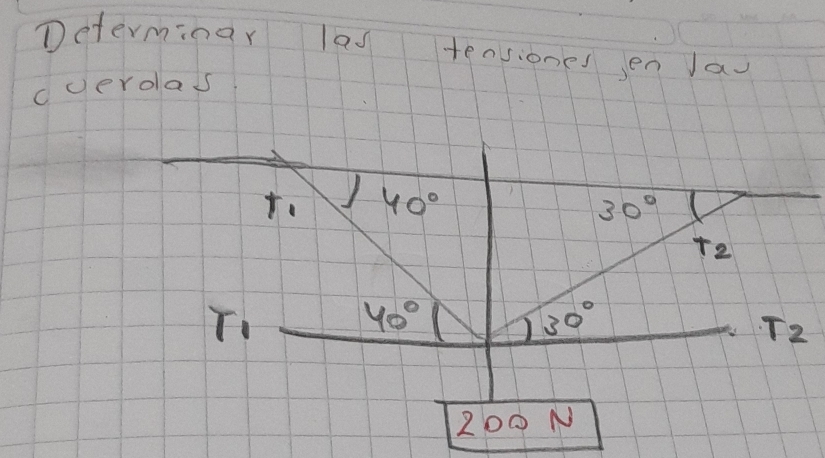 Determinar las tensiones en las
cuerdas.
T1 40° 30° T2
T1 40° 30° T2
200 N